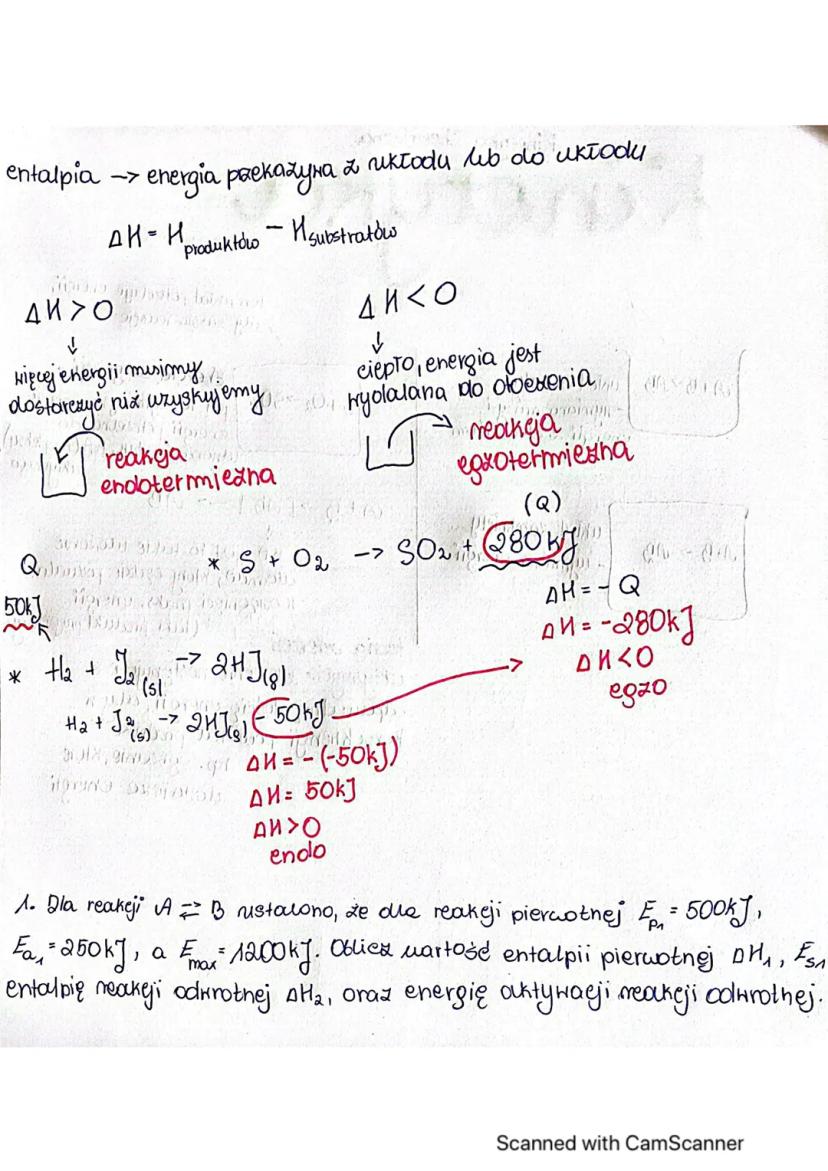 entalpia -> energia przekazyna z układu lub do układu
ΔH = H produktów - H substratów
ΔH > 0
↓
więcej energii musimy
dostarczyć niż uzyskujemy
reakcja
endotermiczna
ΔH < 0
↓
ciepło, energia jest
wydalana do otoczenia
reakcja
egzotermiczna
(Q)
* S + O2 -> SO2 + 280 kJ
ΔH = - Q
ΔH = -280kJ
ΔH < 0
egzo
Q
50kJ
* H2 + J2(s) -> 2HJ(g)
H2 + J2(s) -> 2HJ(g) - 50kJ
ΔH = - (-50kJ)
ΔH = 50kJ
ΔH > 0
endo
1. Dla reakcji A ⇄ B ustalono, że dla reakcji pierwotnej Ep1 = 500kJ,
Ea1 = 250kJ, a Emax = 1200kJ. Oblicz wartość entalpii pierwotnej ΔH1, Es1
entalpię reakcji odwrotnej ΔH2, oraz energię aktywacji reakcji odwrotnej.
Scanned with CamScanner